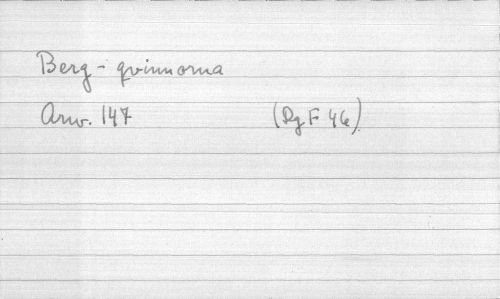 Berg-qvinnorna
Arw. 147 (Dg F 46)